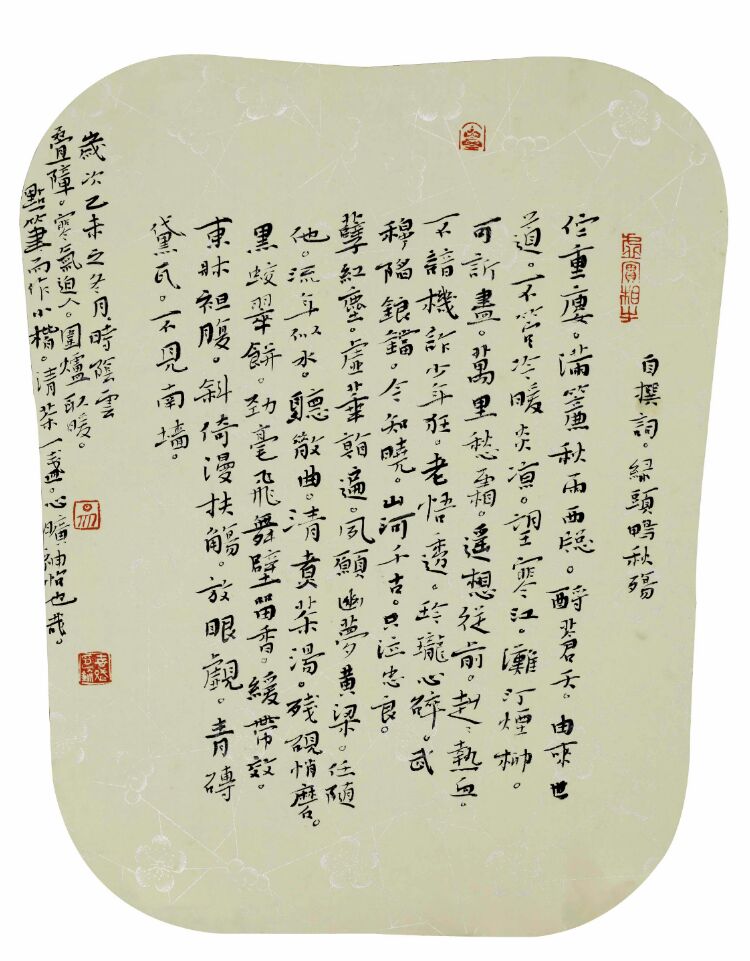 虛實相生
自撰詞。綠頭鴨秋殤
佇重廔。滿簾秋雨西牕。酹蒼天。由來世
道。不管冷暖炎凉。望寒江。灘汀煙柳。
可訴盡。萬里愁霜。遥想從前。赳赳熱血。
不諳機詐少年狂。老悟透。玲瓏心碎。武
穆陷鋃鐺。今知曉。山河千古。只泣忠良。
孽紅塵。虛華遍。夙願幽夢黃梁。任隨
他。流年似水。聽散曲。清煮茶湯。残硯悄磨。
黑蛟翠餅。勁毫飛舞壁留香。緩帶效。
東牀袒腹。斜倚漫扶觴。放眼觀。青磚
黛瓦。不見南墙。
歲次乙未之冬月。時陰雲
疊障。寒氣迫人。圍爐取暖。
點筆而作小楷。清茶一盞。心曠神怡也哉。